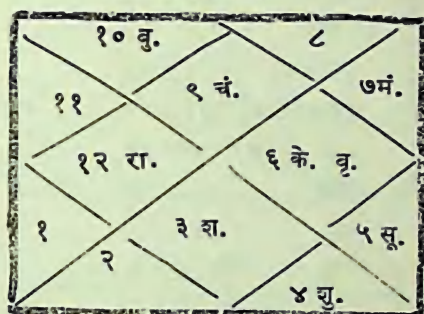 १० वु. ८
११ ९ चं. ७मं.
१२ रा. ६ के. वृ.
१ ३ श. ५ सू.
२
४ शु.